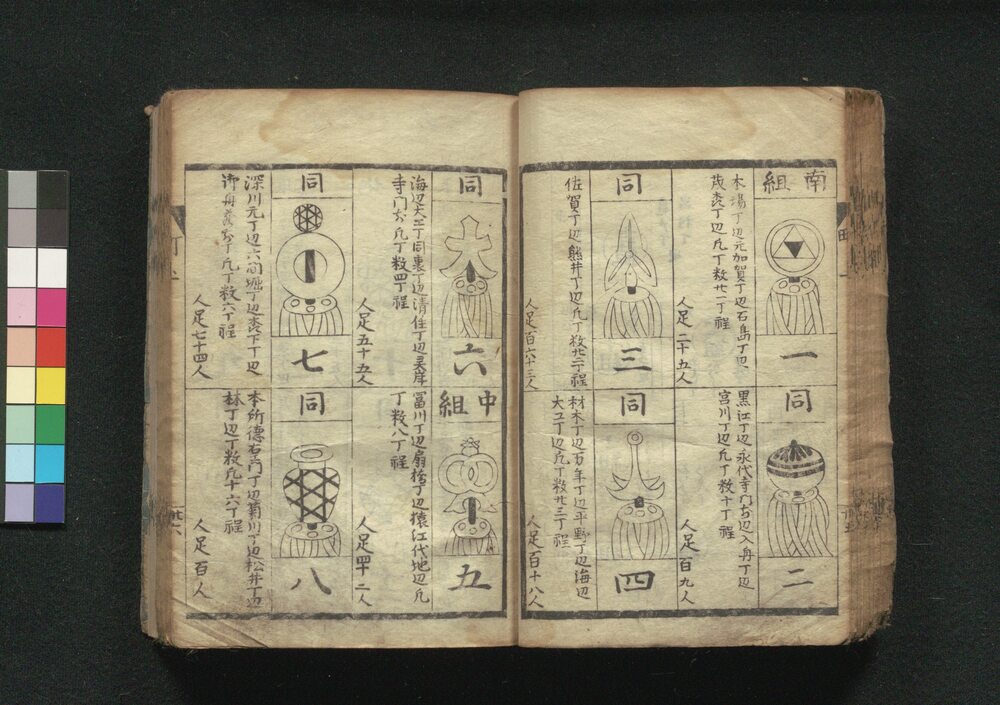 南組
一
木場丁辺元加賀丁辺石島丁辺
茂森丁辺凡丁数廿一丁程
人足二十五人
同
二
黒江丁辺永代寺門前辺入舟丁辺
宮川丁辺凡丁数十丁程
人足百九人
同
三
佐賀丁辺熊井丁辺凡丁数廿二丁程
人足百六十三人
同
四
材木丁辺万年丁辺平野丁辺海辺
大工丁辺凡丁数廿三丁程
人足百十八人
同
六
海辺大工丁同裏丁辺清住丁辺灵岸
寺門前凡丁数四丁程
人足五十五人
中組
五
冨川丁辺扇橋丁辺猿江代地辺凡
丁数八丁程
人足四十二人
同
七
深川元丁辺六間堀丁辺森下丁辺
御舟蔵前丁凡丁数六丁程
人足七十四人
同
八
本所徳右衛門丁辺菊川丁辺松井丁辺
林丁辺丁数凡十六丁程
人足百人
廿六